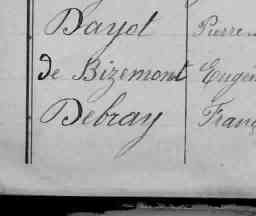 Dayot Pierre
de Bizemont Eugé
Debray Franç